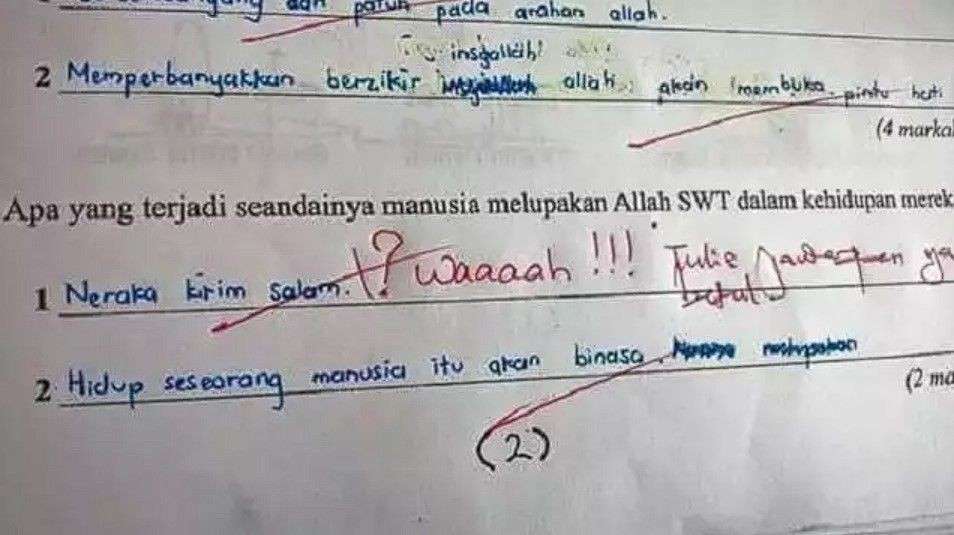 dan patuh pada arahan allah.
insyallah!
2 Memperbanyakkan berzikir allah, akan membuka pintu hati
(4 markah
Apa yang terjadi seandainya manusia melupakan Allah SWT dalam kehidupan merek
1 Neraka kirim salam. !? Waaaah !!! Tulis jawapan ya
betul
2. Hidup seseorang manusia itu akan binasa.
(2 ma
(2)